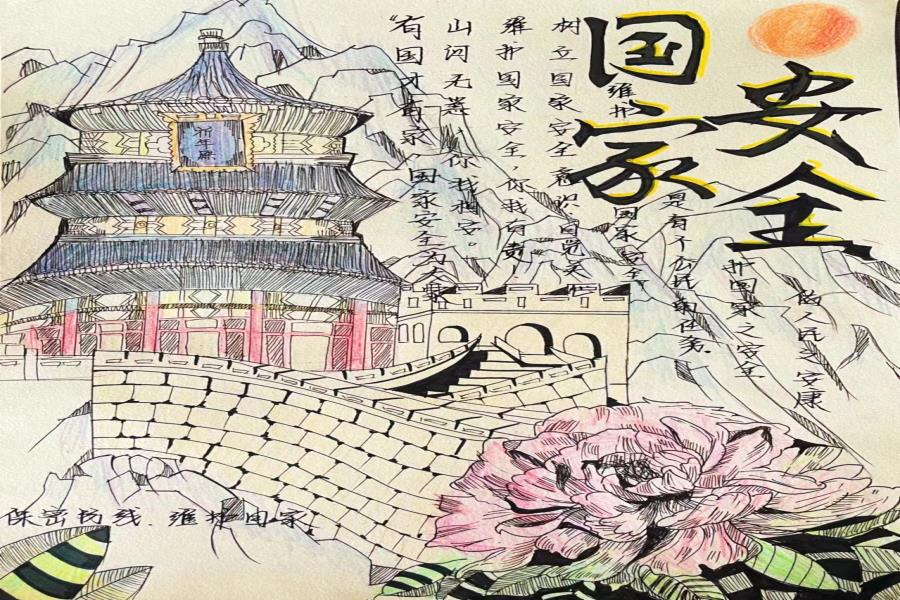 国家安全
祈年殿
“有国才有家,国家安全为大家
山河无恙,你我相守。
维护国家安全,你我有责!
树立国家安全意识,自觉关心
维护
国家安全
公民的任务.
护国家之安全
的人民之安康
保密防线.维护国家.